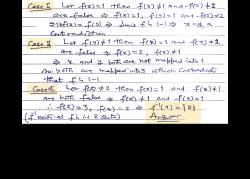 Case I. Let f(x)=1 then f(y)≠1 and f(z)≠2
are false ⇒ f(x)=1, f(y)=1 and f(z)=2
f(x)=f(y) ⇒ Since f is 1-1 ⇒ x=y, a
contradiction
Case II Let f(y)≠1 then f(x)=1 and f(z)≠2
are false ⇒ f(z)=2, f(x)≠1
⇒ x and y both are not mapped into 1
both are mapped into 3 which contradicts
that f is 1-1
Case III. f(z)≠2 then f(x)=1 and f(y)≠1
are both false ⇒ f(x)≠1 and f(y)=1
∴ f(z)=3, f(x)=2 ⇒ f⁻¹(1)={y}
(f⁻¹ exists as f is 1-1 & onto) Answer